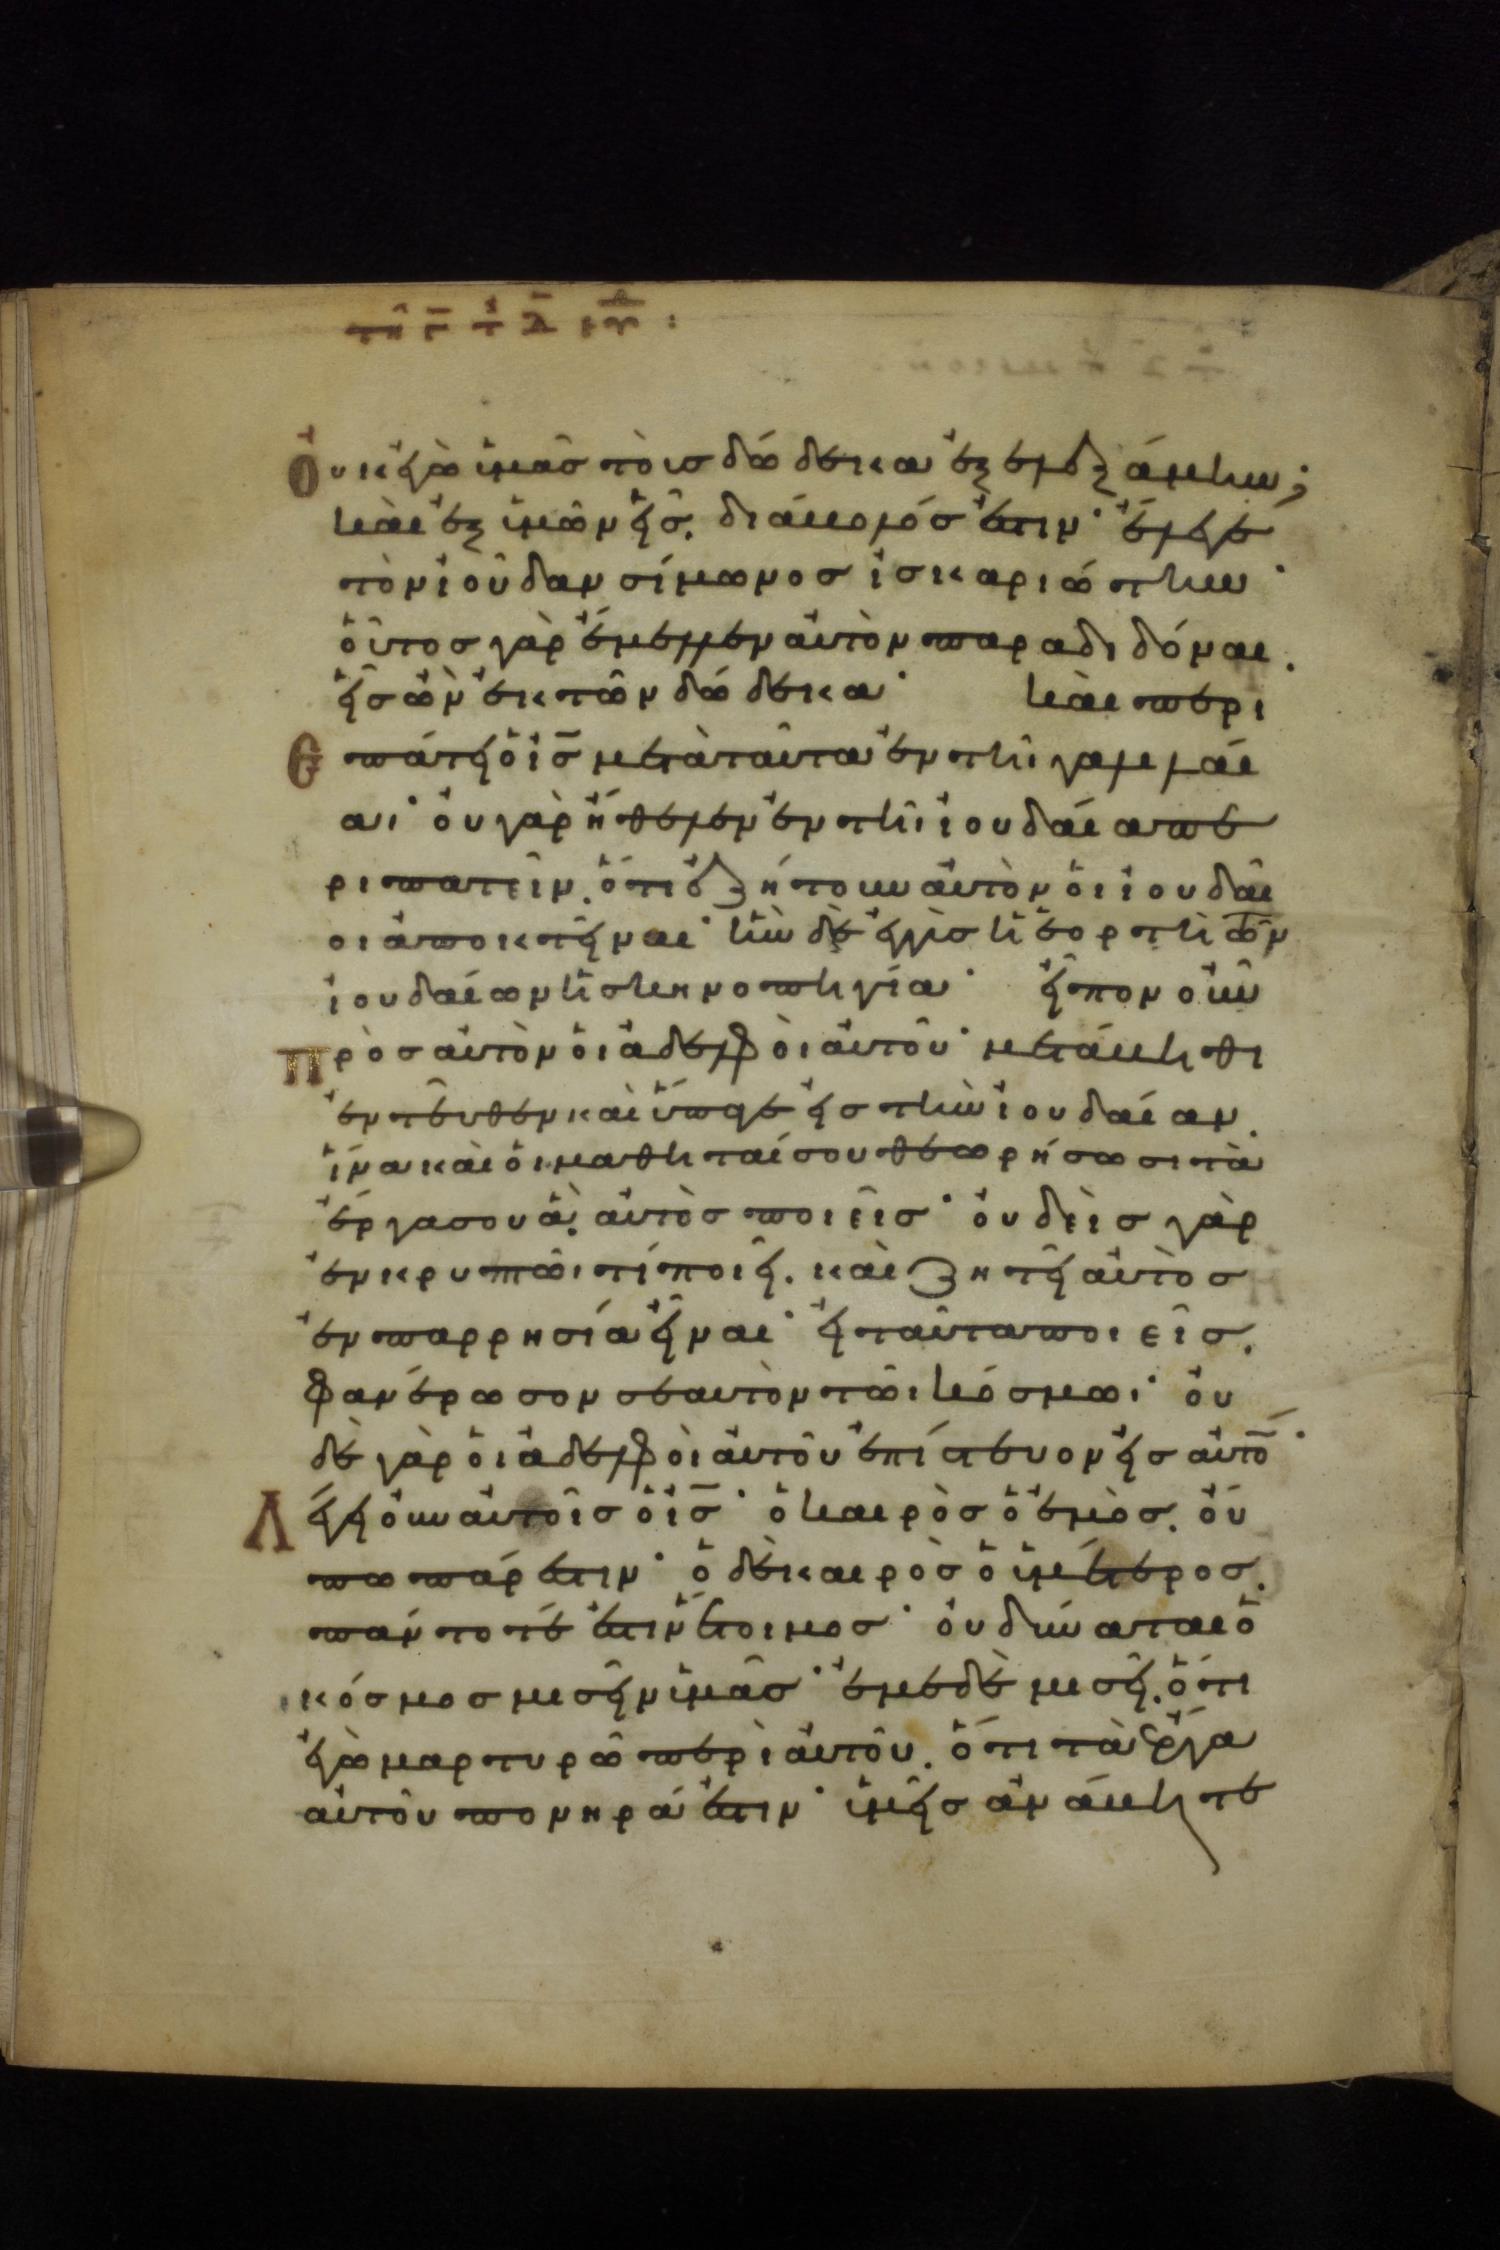 τῆ γ τ δ
Οὐκ ἐγὼ ὑμᾶς τοὺς δώδεκα ἐξελεξάμην;
καὶ ἐξ ὑμῶν εἷς. διάβολός ἐστιν· ἔλεγε
τὸν ἰούδαν σίμωνος ἰσκαριώτην·
οὗτος γὰρ ἔμελλεν αὐτὸν παραδιδόναι.
εἷς ὢν ἐκ τῶν δώδεκα· καὶ περι
επάτει ὁ ἰς μετὰ ταῦτα ἐν τῆι γαλιλαί
αι· οὐ γὰρ ἤθελεν ἐν τῆι ἰουδαία πε
ριπατεῖν. ὅτι ἐζήτουν αὐτὸν οἱ ἰουδαῖ
οι ἀποκτεῖναι· ἦν δὲ ἐγγὺς ἡ ἑορτὴ τῶν
ἰουδαίων ἡ σκηνοπηγία· εἶπον οὖν
πρὸς αὐτὸν οἱ ἀδελφοὶ αὐτοῦ· μετάβηθι
ἐντεῦθεν καὶ ὕπαγε εἰς τὴν ἰουδαίαν.
ἵνα καὶ οἱ μαθηταί σου θεωρήσωσι τὰ
ἔργα σου ἃ αὐτὸς ποιεῖς· οὐδεὶς γὰρ
ἐν κρυπτῶι τί ποιεῖ. καὶ ζητεῖ αὐτὸς
ἐν παρρησία εἶναι· εἰ ταῦτα ποιεῖς.
φανέρωσον σεαυτὸν τῶι κόσμωι· οὐ
δὲ γὰρ οἱ ἀδελφοὶ αὐτοῦ ἐπίστευον εἰς αὐτό·
Λέγει οὖν αὐτοῖς ὁ ἰς· ὁ καιρὸς ὁ ἐμὸς. οὔ
πω πάρεστιν· ὁ δὲ καιρὸς ὁ ὑμέτερος.
πάντοτέ ἐστιν ἕτοιμος· οὐ δύναται ὁ
κόσμος μισεῖν ὑμᾶς· ἐμὲ δὲ μισεῖ. ὅτι
ἐγὼ μαρτυρῶ περὶ αὐτοῦ. ὅτι τὰ ἔργα
αὐτοῦ πονηρά ἐστιν· ὑμεῖς ἀνάβητε